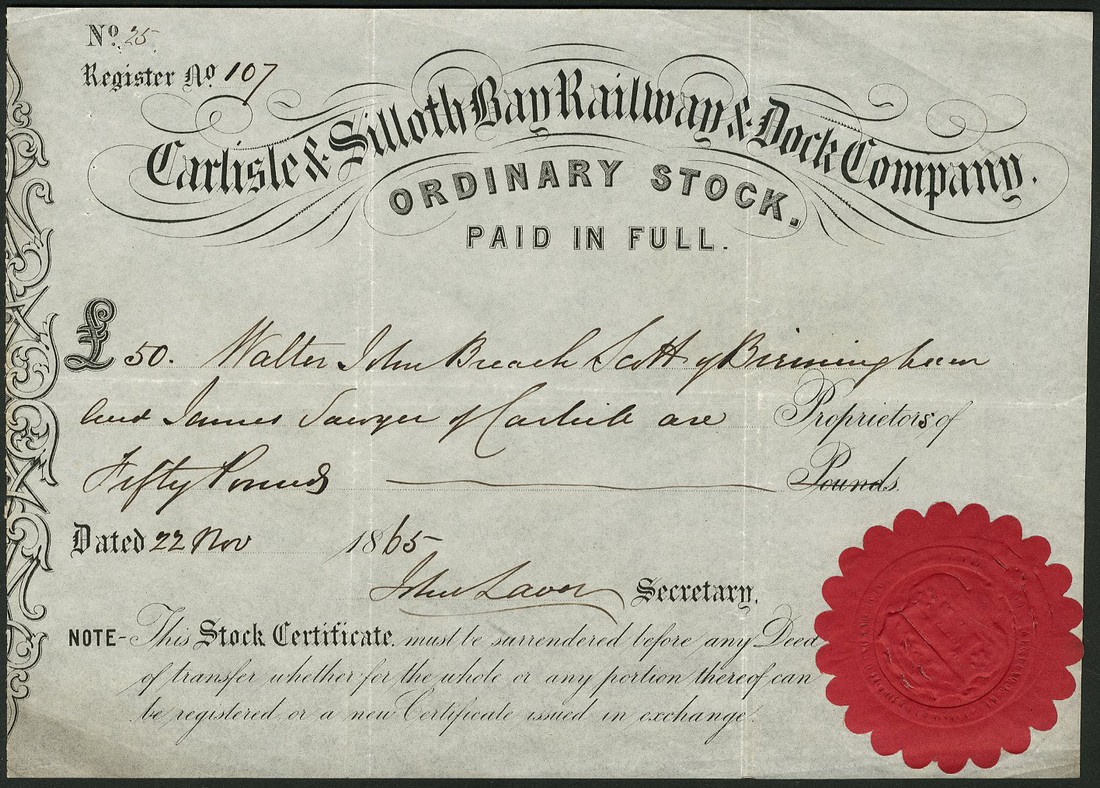 No. 25
Register No. 107
Carlisle & Silloth Bay Railway & Dock Company.
ORDINARY STOCK.
PAID IN FULL.
£50. Walter John Breach Scott of Birmingham
and James Sawyer of Carlisle are Proprietors of
Fifty Pounds Pounds.
Dated 22 Nov 1865
John Secretary.
NOTE - This Stock Certificate must be surrendered before any Deed
of transfer whether for the whole or any portion thereof can
be registered or a new Certificate issued in exchange.